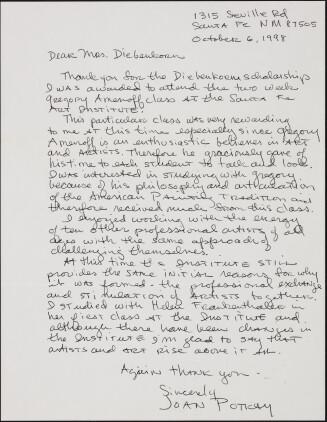 1315 Seville Rd
Santa Fe NM 87505
October 6, 1998
Dear Mrs. Diebenkorn
Thank you for the Diebenkorn scholarship
I was awarded to attend the two week
Gregory Amenoff class at the Santa Fe
Art Institute.
This particular class was very rewarding
to me at this time especially since Gregory
Amenoff is an enthusiastic believer in ART
and ARTISTS. Therefore he graciously gave of
his time to each student to talk and look.
I was interested in studying with Gregory
because of his philosophy and articulation
of the American Painting Tradition and
therefore received much from this class.
I enjoyed working with the energy
of ten other professional artists of all
ages with the same approach of
challenging themselves.
At this time the Institute still
provides the same initial reasons for why
it was formed - the professional exchange
and stimulation of artists together.
I studied with Helen Frankenthaler in
her first class at the Institute and
although there have been changes in
the Institute I'm glad to say that
artists and art rise above it all.
Again thank you -
Sincerely
Joan